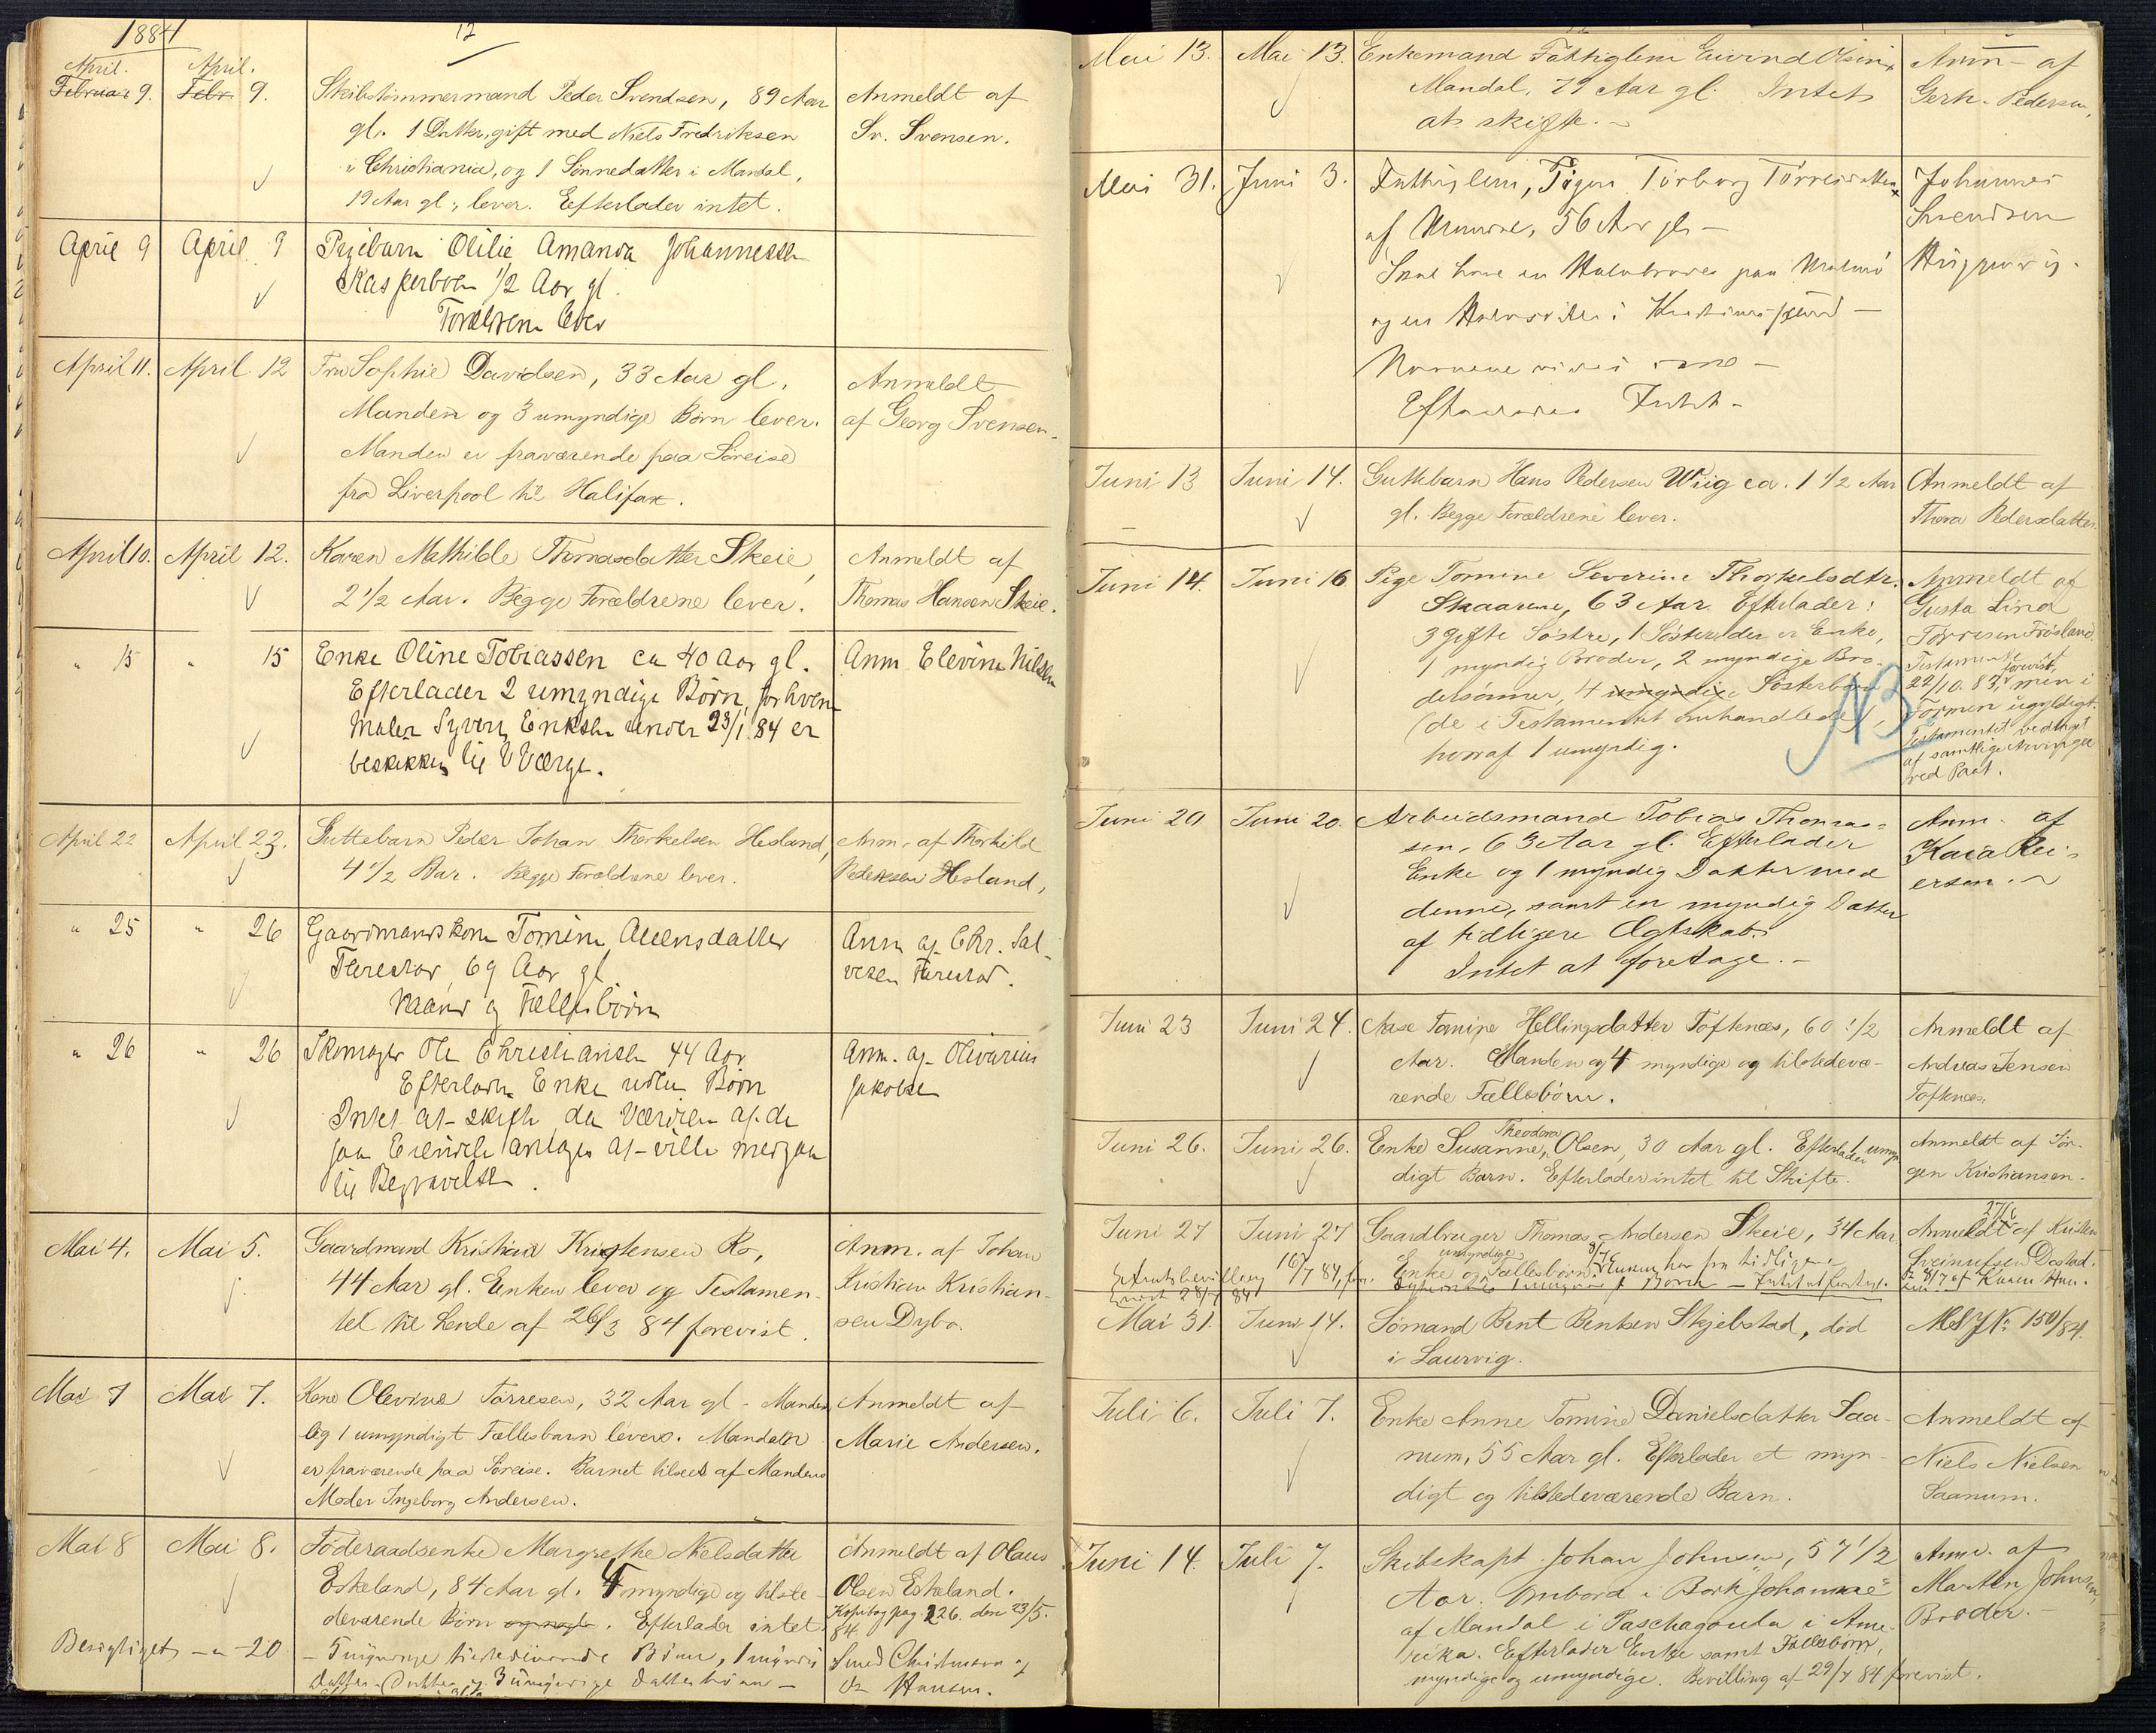 1884
12
April. April.
Februar 9. Febr 9. Skibstømmermand Peder Svendsen, 89 Aar
gl. 1 Datter, gift med Niels Fredriksen
i Christiania, og 1 Sønnedatter i Mandal,
19 Aar gl., lever. Efterlader intet.
Anmeldt af
Sv. Svensen.
April 9 April 9 Pigebarn Otilie Amanda Johannessen
Kasperboen 1/2 Aar gl.
Forældrene lever
April 11. April 12 Fru Sophie Davidsen, 33 Aar gl.
Manden og 3 umyndige Børn lever.
Manden er fraværende paa Søreise
fra Liverpool til Halifax.
Anmeldt
af Georg Svensen.
April 10. April 12. Karen Mathilde Thomasdatter Skeie,
2 1/2 Aar. Begge Forældrene lever.
Anmeldt af
Thomas Hansen Skeie.
" 15 " 15 Enke Oline Tobiassen ca 40 Aar gl.
Efterlader 2 umyndige Børn, for hvem
Maler Syvert Eriksen under 23/1 84 er
beskikket til Værge.
Anm Elevine Nilsen
April 22 April 23. Guttebarn Peder Johan Thorkelsen Hesland,
4 1/2 Aar. Begge Forældrene lever.
Anm. af Thorkild
Pedersen Hesland,
" 25 " 26 Gaardmandskone Tomine Auensdatter
69 Aar gl
Mand og Fællesbørn
Anm af Chr. Sal-
vesen
" 26 " 26 Skomager Ole Christiansen 44 Aar
Efterlader Enke uden Børn
Intet at skifte da Værdien af de
paa Eiendele antages at ville medgaa
til Begravelsen.
Anm. af Olivarius
Jakobsen
Mai 4. Mai 5. Gaardmand Kristian Kristensen Ro,
44 Aar gl. Enken lever og Testamen-
tet til hende af 26/3 84 forevist.
Anm. af Johan
Kristian Kristian-
sen Dybo.
Mai 7 Mai 7. Kone Olevine Tørresen, 32 Aar gl - Manden
og 1 umyndigt Fællesbarn lever. Manden
er fraværende paa Søreise. Barnet tilsees af Mandens
Moder Ingeborg Andersen.
Anmeldt af
Marie Andersen.
Mai 8 Mai 8. Føderaadsenke Margrethe Nielsdatter
Eskeland, 84 Aar gl. 4 myndige og tilste-
deværende Børn. Efterlader intet
Anmeldt af Olaus
Olsen Eskeland.
Kopibog pag. 226. den 23/5.
84
Besigtiget — " — 20 — 5 myndige tilstedeværende Børn, 1 myndig
Datter-Datter og 3 umyndige Datterbørn —
Smed Christensen og
Hansen.
Mai 13. Mai 13. Enkemand Fattiglem Eivind Olsen
Mandal, 79 Aar gl. Intet
at skifte.
Anm af
Gerh. Pedersen,
Mai 31. Juni 3. Fattiglem, Pigen Torborg Tørresdatter
af Mandal, 56 Aar gl —
Skal have en Halvbroder paa Malmø
og en Halvsøster i Kristianssand —
Navnene vides ikke —
Efterlader Intet —
Johannes
Svendsen
Juni 13 Juni 14. Guttebarn Hans Pedersen Wiig ca. 1 1/2 Aar
gl. Begge Forældrene lever.
Anmeldt af
Thora Pedersdatter
Juni 14. Juni 16 Pige Tomine Severine Thorkelsdtr.
Skaarene, 63 Aar. Efterlader:
3 gifte Søstre, 1 Søster der er Enke,
1 myndig Broder, 2 myndige Bro-
dersønner, 4 umyndige Søsterbørn
(de i Testamentet omhandlede),
hvoraf 1 umyndig.
NB
Anmeldt af
Gusta Lind
Tørresen Frøsland
Testamente af
22/10. 83, forevist, men i
Formen ugyldigt.
Testamentet vedtaget
af samtlige Arvinger
ved Paat.
Juni 20 Juni 20. Arbeidsmand Tobias Thomas-
sen, 63 Aar gl. Efterlader
Enke og 1 myndig Datter med
denne, samt en myndig Datter
af tidligere Ægteskab.
Intet at foretage.
Anm. af
Kaia Rei-
ersen.
Juni 23 Juni 24. Aase Tomine Hellingsdatter Toftenæs, 60 1/2
Aar. Manden og 4 myndige og tilstedevæ-
rende Fællesbørn.
Anmeldt af
Andreas Jensen
Toftenæs,
Juni 26. Juni 26. Enke Susanne Theodora Olsen, 30 Aar gl. Efterlader 1 umyn-
digt Barn. Efterlader intet til Skifte.
Anmeldt af Jør-
gen Kristiansen.
Juni 27 Juni 27 Gaardbruger Thomas Andersen Skeie, 34 Aar.
Enke og umyndige Fællesbørn. Enken har fra tidligere
Intet at foretage.
Amtsbevilling 16/7 84, fore-
vist 28/7 84
Anmeldt 27/6 af Kristen
Sveinufsen Dastad.
Mai 31. Juni 14. Sømand Bent Bentsen Skjebstad, død
i Laurvig.
MSJ No 150/84.
Juli 6. Juli 7. Enke Anne Tomine Danielsdatter Saa-
num, 55 Aar gl. Efterlader et myn-
digt og tilstedeværende Barn.
Anmeldt af
Niels Nielsen
Saanum.
Juni 14. Juli 7. Skibskapt. Johan Johnsen, 57 1/2
Aar. Ombord i Bark "Johanne"
af Mandal i Paschagoula i Ame-
rika. Efterlader Enke samt Fællesbørn,
myndige og umyndige. Bevilling af 29/7 84 forevist.
Anm. af
Martin Johnsen,
Broder.